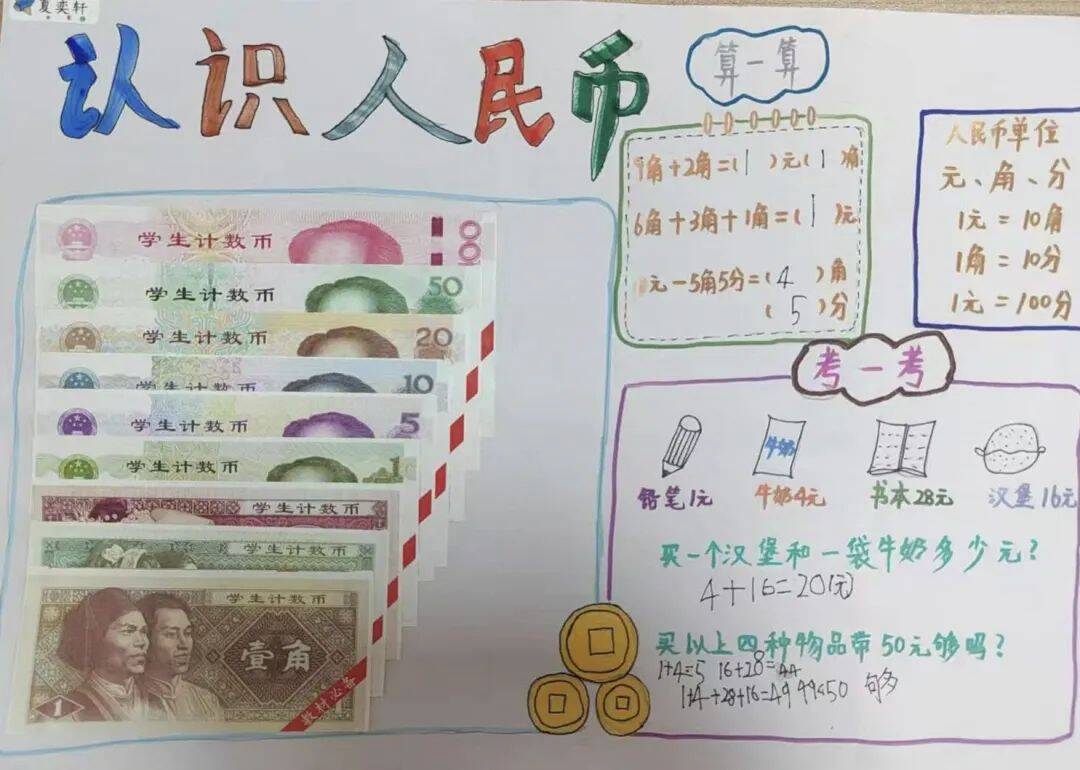 夏奕轩
认识人民币
算一算
9角+2角=(1)元(1)角
6角+3角+1角=(1)元
元-5角5分=(4)角
(5)分
人民币单位
元、角、分
1元=10角
1角=10分
1元=100分
学生计数币 100
学生计数币 50
学生计数币 20
学生计数币 10
学生计数币 5
学生计数币 1
学生计数币
学生计数币
学生计数币
壹角
1
教材必备
考一考
牛奶
铅笔1元 牛奶4元 书本28元 汉堡16元
买一个汉堡和一袋牛奶多少元?
4+16=20(元)
买以上四种物品带50元够吗?
1+4=5 16+28=44
1+4+28+16=49 49<50 够